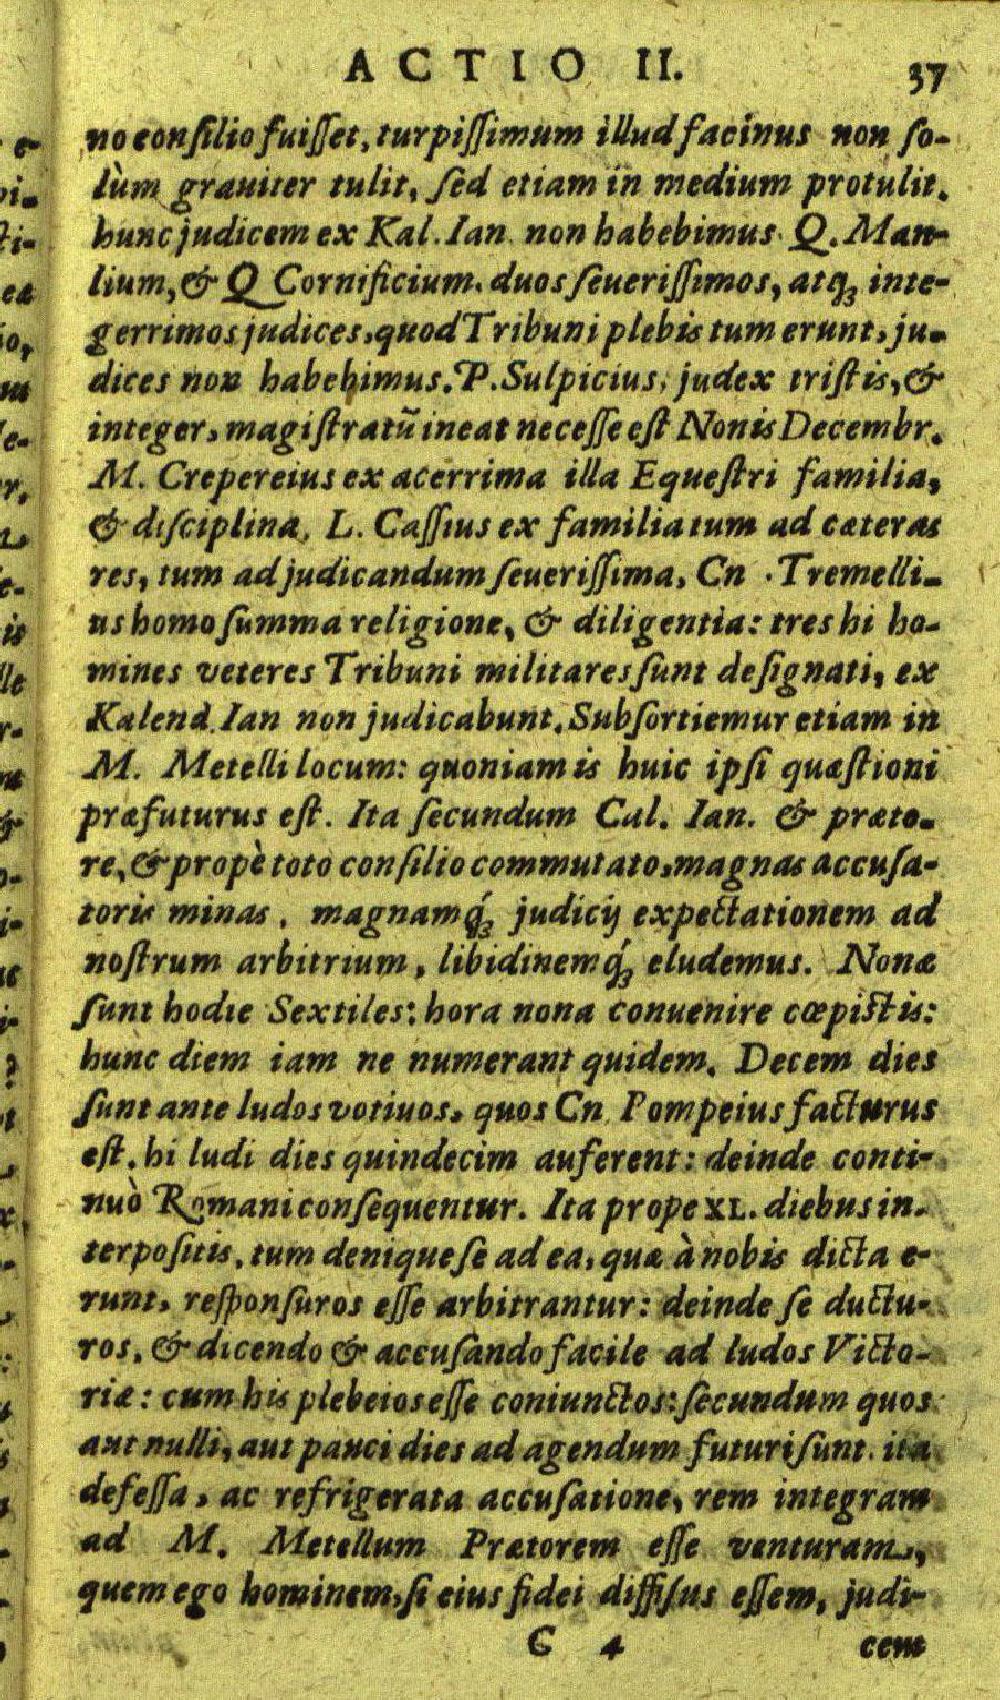 ACTIO II. 37
no consilio fuisset, turpissimum illud facinus non so-
lùm grauiter tulit, sed etiam in medium protulit.
hunc judicem ex Kal. Ian. non habebimus. Q. Man-
lium, & Q Cornificium. duos seuerissimos, atq; inte-
gerrimos judices, quod Tribuni plebis tum erunt, ju-
dices non habebimus. P. Sulpicius, judex tristis, &
integer, magistratũ ineat necesse est Nonis Decembr.
M. Crepereius ex acerrima illa Equestri familia,
& disciplina, L. Cassius ex familia tum ad cæteras
res, tum ad judicandum seuerissima, Cn . Tremelli-
us homo summa religione, & diligentia: tres hi ho-
mines veteres Tribuni militares sunt designati, ex
Kalend. Ian non judicabunt. Subsortiemur etiam in
M. Metelli locum: quoniam is huic ipsi quæstioni
præfuturus est. Ita secundum Cal. Ian. & præto-
re, & propè toto consilio commutato, magnas accusa-
toris minas, magnamq́; judicij expectationem ad
nostrum arbitrium, libidinemq́; eludemus. Nonæ
sunt hodie Sextiles: hora nona conuenire cœpistis:
hunc diem iam ne numerant quidem. Decem dies
sunt ante ludos votiuos, quos Cn. Pompeius facturus
est. hi ludi dies quindecim auferent: deinde conti-
nuò Romani consequentur. Ita prope XL. diebus in-
terpositis, tum denique se ad ea, quæ à nobis dicta e-
runt, responsuros esse arbitrantur: deinde se ductu-
ros, & dicendo & accusando facile ad ludos Victo-
riæ: cum his plebeios esse coniunctos: secundum quos
aut nulli, aut pauci dies ad agendum futuri sunt. ita
defessa, ac refrigerata accusatione, rem integram
ad M. Metellum Prætorem esse venturam,
quem ego hominem, si eius fidei diffisus essem, judi-
C 4 cem